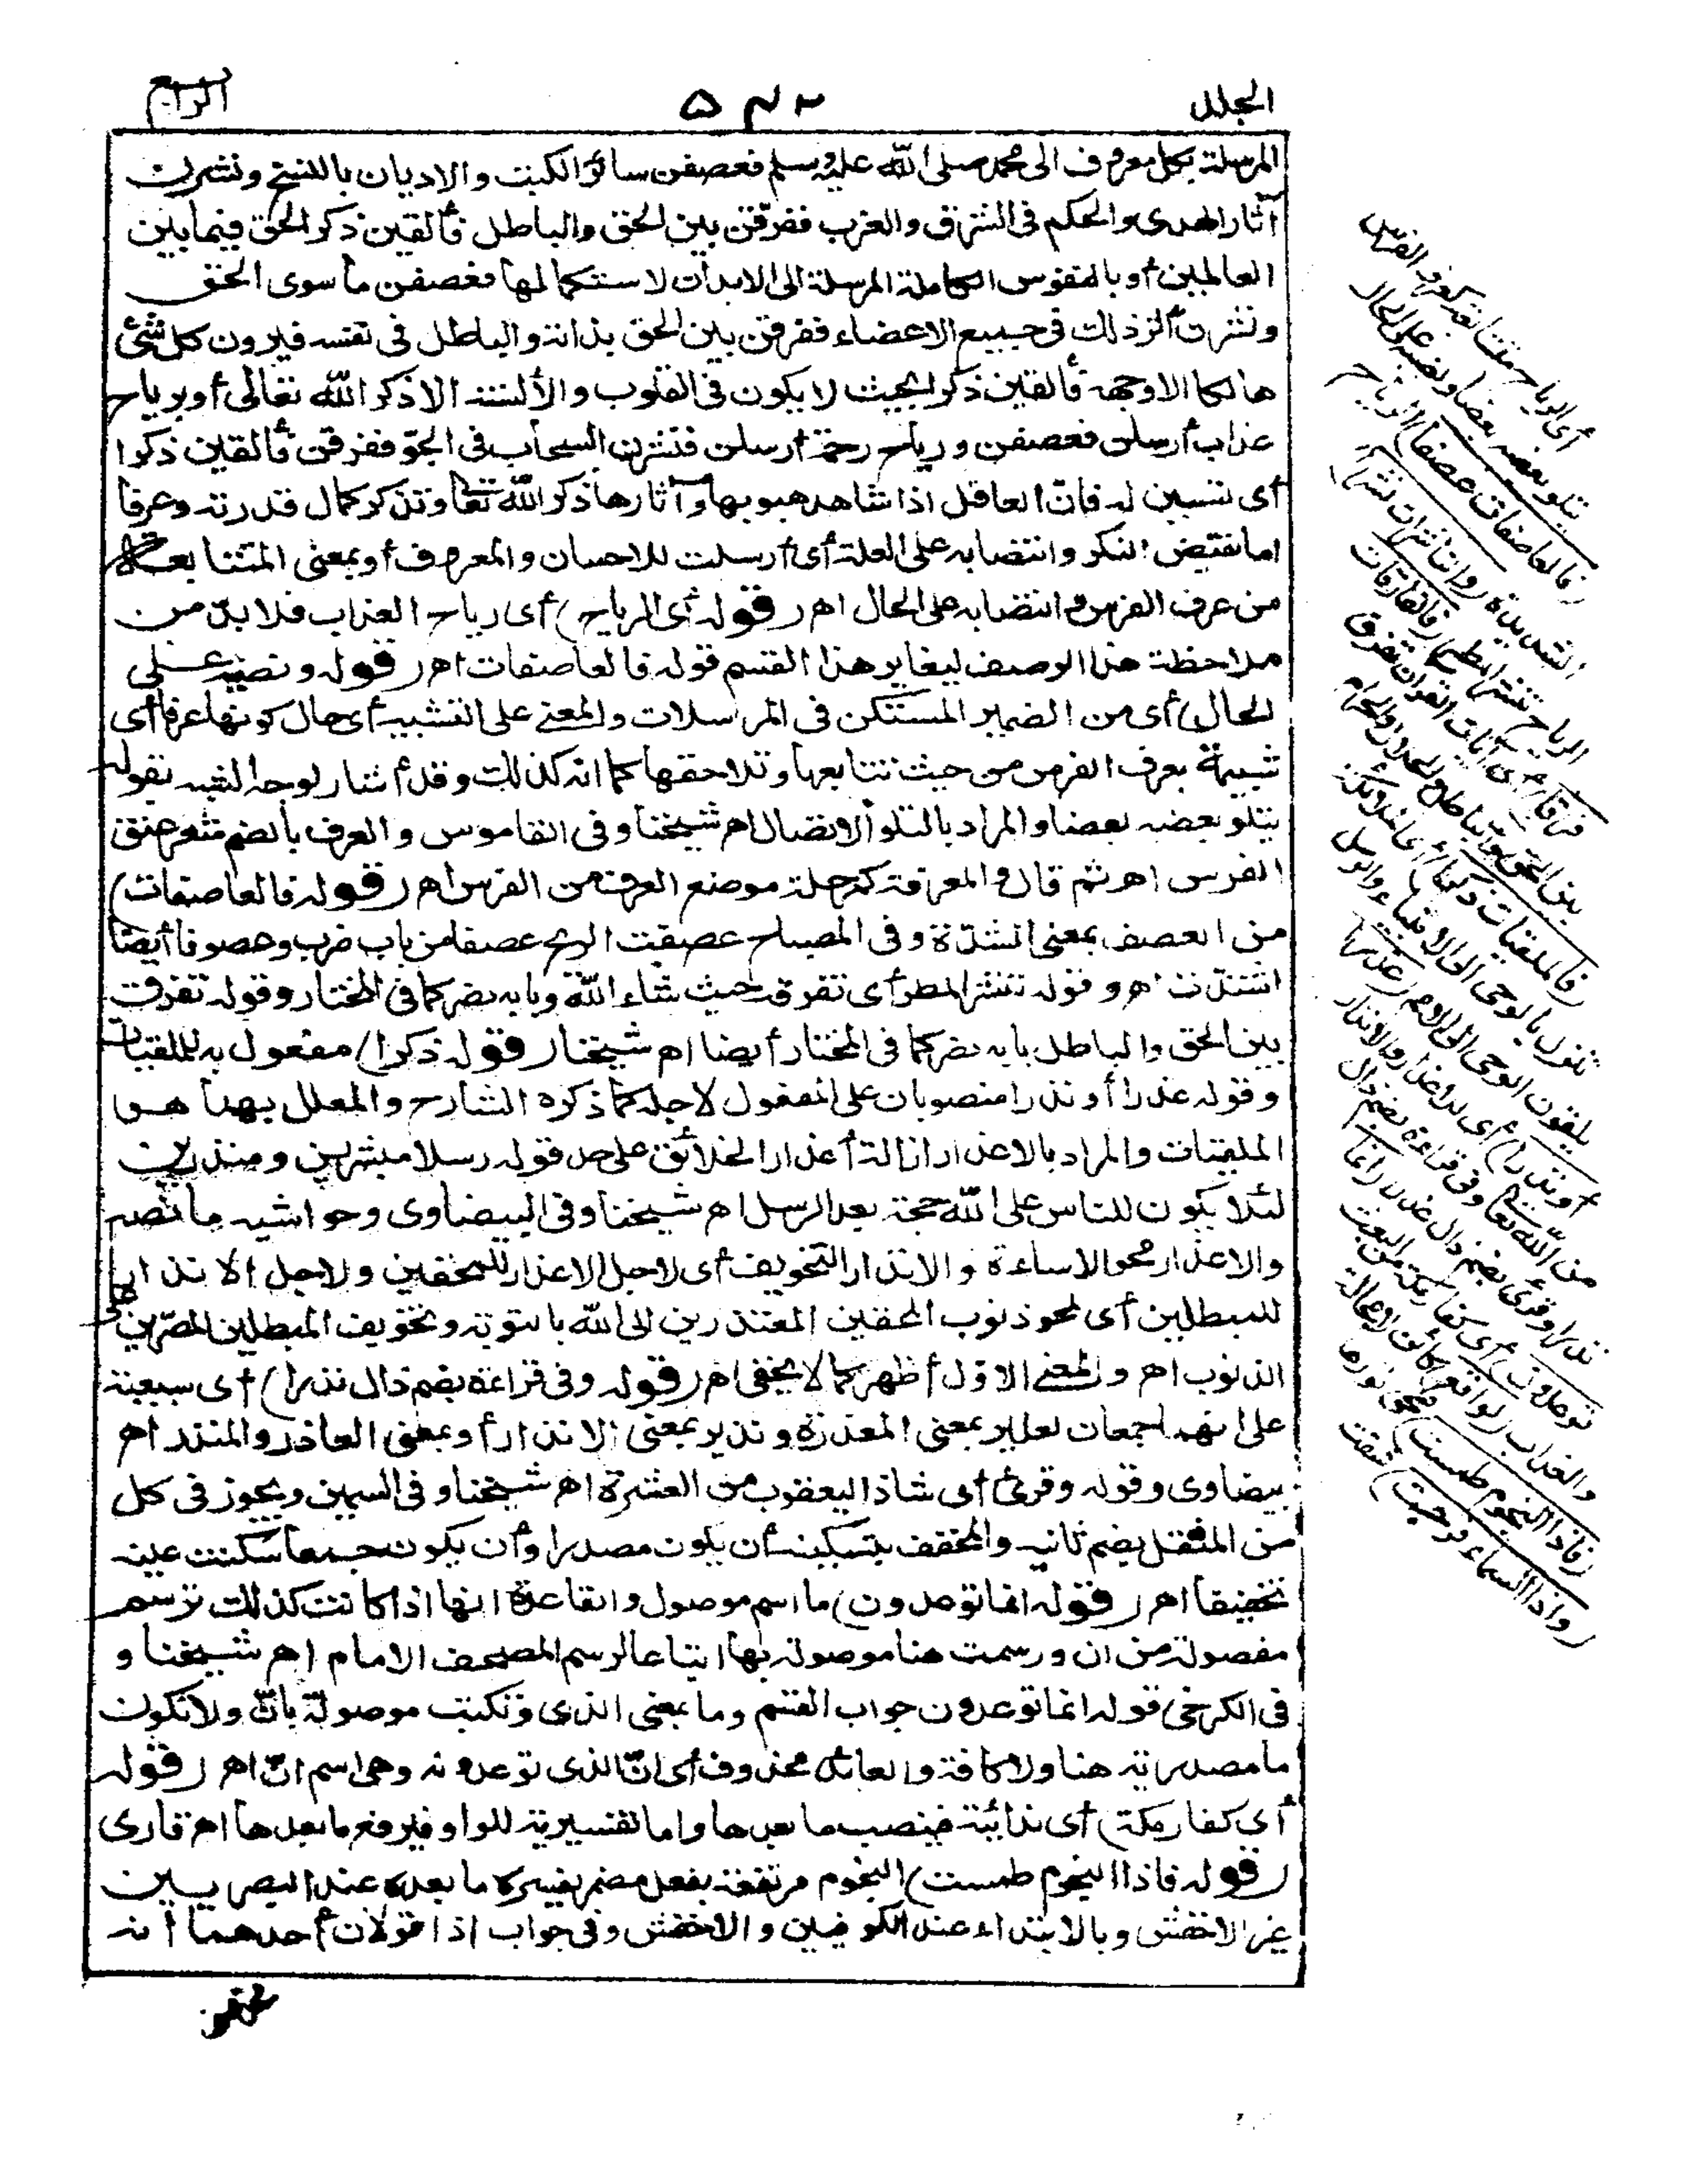 المجلد
۵۴۲
الرابع
المرسلة بكل معروف الى محمد صلى الله عليه وسلم فعصفن سائر الكتب والاديان بالنسخ ونشرن
آثار الهدى والحكم فى الشرق والغرب ففرقن بين الحق والباطل فألقين ذكر الحق فيما بين
العالمين أو بالنفوس الكاملة المرسلة الى الابدان لاستكمالها فعصفن ما سوى الحق
ونشرن أثر ذلك فى جميع الاعضاء ففرقن بين الحق بذاته والباطل فى نفسه فيرون كل شئ
هالكا الا وجهه فألقين ذكرا بحيث لا يكون فى القلوب والألسنة الا ذكر الله تعالى أو برياح
عذاب أرسلن فعصفن ورياح رحمة أرسلن فنشرن السحاب فى الجوّ ففرقن فألقين ذكرا
أى تسببن له فانّ العاقل اذا شاهد هبوبها وآثارها ذكر الله تعا وتذكر كمال قدرته وعرفا
اما نقيض النكر وانتصابه على العلة أى أرسلت للاحسان والمعروف أو بمعنى المتتابعة
من عرف الفرس وانتصابه على الحال اهـ (قوله أى الرياح) أى رياح العذاب فلا بدّ من
ملاحظة هذا الوصف ليغاير هذا القسم قوله فالعاصفات اهـ (قوله ونصبه على
الحال) أى من الضمير المستكن فى المرسلات والمعنى على التشبيه أى حال كونها عرفا أى
شبيهة بعرف الفرس من حيث تتابعها وتلاحقها كما انه كذلك وقد أشار لوجه الشبه بقوله
يتلو بعضه بعضا والمراد بالتلو الاتصال اهـ شيخنا وفى القاموس والعرف بالضم شعر عنق
الفرس اهـ ثم قال والمعرفة كمرحلة موضع العرف من الفرس اهـ (قوله فالعاصفات)
من العصف بمعنى الشدّة وفى المصباح عصفت الريح عصفا من باب ضرب وعصوفا أيضا
اشتدّت اهـ وقوله تنشر المطر أى تفرقه حيث شاء الله وبابه نصر كما فى المختار وقوله تفرق
بين الحق والباطل بابه نصر كما فى المختار أيضا اهـ شيخنا (قوله ذكرا) مفعول به للملقيات
وقوله عذرا أو نذرا منصوبان على المفعول لاجله كما ذكره الشارح والمعلل بهما هو
الملقيات والمراد بالاعذار ازالة أعذار الخلائق على حد قوله رسلا مبشرين ومنذرين
لئلا يكون للناس على الله حجة بعد الرسل اهـ شيخنا وفى البيضاوى وحواشيه ما نصه
والاعذار محو الاساءة والانذار التخويف أى لاجل الاعذار للمحقين ولاجل الانذار
للمبطلين أى لمحو ذنوب المحقين المعتذرين الى الله بالتوبة وتخويف المبطلين المصرّين على
الذنوب اهـ والمعنى الاوّل أظهر كما لا يخفى اهـ (قوله وفى قراءة بضم ذال نذرا) أى سبعية
على انهما جمعان لعذير بمعنى المعذرة ونذير بمعنى الانذار أو بمعنى العاذر والمنذر اهـ
بيضاوى وقوله وقرئ أى شاذا ليعقوب من العشرة اهـ شيخنا وفى السمين ويجوز فى كل
من المثقل بضم ثانيه والمخفف بتسكينه أن يكون مصدرا وأن يكون جمعا سكنت عينه
تخفيفا اهـ (قوله انما توعدون) ما اسم موصول والقاعدة انها اذا كانت كذلك ترسم
مفصولة من ان ورسمت هنا موصولة بها اتباعا لرسم المصحف الامام اهـ شيخنا و
فى الكرخى قوله انما توعدون جواب القسم وما بمعنى الذى وتكتب موصولة بانّ ولا تكون
ما مصدرية هنا ولا كافة والعائد محذوف أى انّ الذى توعدونه وهى اسم انّ اهـ (قوله
أى كفار مكة) أى ندائية فينصب ما بعدها واما تفسيرية للواو فيرفع ما بعدها اهـ قارى
(قوله فاذا النجوم طمست) النجوم مرتفعة بفعل مضمر يفسره ما بعده عند البصريين
غير الاخفش وبالابتداء عند الكوفيين والاخفش وفى جواب اذا قولان أحدهما أنه
أى الرياح متتابعة كعرف الفرس
يتلو بعضه بعضا ونصبه على الحال
(فالعاصفات عصفا) الرياح
الشديدة (والناشرات نشرا)
الرياح تنشر المطر (فالفارقات
فرقا) أى آيات القرآن تفرق
بين الحق والباطل والحلال والحرام
(فالملقيات ذكرا) أى الملائكة
تنزل بالوحى الى الانبياء والرسل
يلقون الوحى الى الامم (عذرا
أو نذرا) أى للاعذار والانذار
من الله تعا وفى قراءة بضم ذال
نذرا وقرئ بضم ذال عذرا (انما
توعدون) أى كفار مكة من البعث
والعذاب (لواقع) كائن لا محالة
(فاذا النجوم طمست) محى نورها
(واذا السماء فرجت) شقت